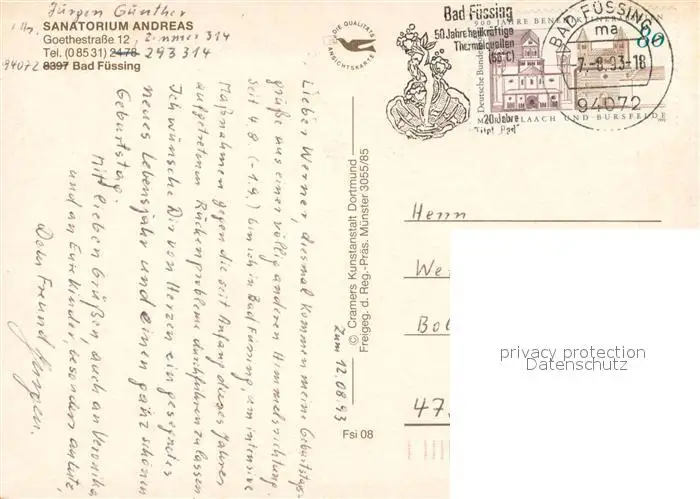 Jürgen Günther
SANATORIUM ANDREAS
Goethestraße 12, Zimmer 314
Tel. (0 85 31) 2478 293 314
94072 8397 Bad Füssing
DIE QUALITÄTS
ANSICHTSKARTE
Bad Füssing
50 Jahre heilkräftige
Thermalquellen
(56°C)
20 Jahre
"Titel Bad"
900 JAHRE BENEDIKTINERABTEIEN
Deutsche Bundespost
80
MARIA LAACH UND BURSFELDE
BAD FÜSSING
ma
-7.-8.93-18
94072
Lieber Werner, diesmal kommen meine Geburtstags-
grüße aus einer völlig anderen Himmelsrichtung.
Seit 4.8 (-1.9.) bin ich in Bad Füssing, um intensive
Maßnahmen gegen die seit Anfang dieses Jahres
aufgetretenen Rückenprobleme durchführen zu lassen.
Ich wünsche Dir von Herzen ein gesegnetes
neues Lebensjahr und einen ganz schönen
Geburtstag.
Mit lieben Grüßen auch an Veronika
und an Eure Kinder, besonders an Ute,
Dein Freund Jürgen.
zum 12.08.93
© Cramers Kunstanstalt Dortmund
Freigeg. d. Reg.-Präs. Münster 3055/85
Fsi 08
Herrn
We
Bol
47
privacy protection
Datenschutz